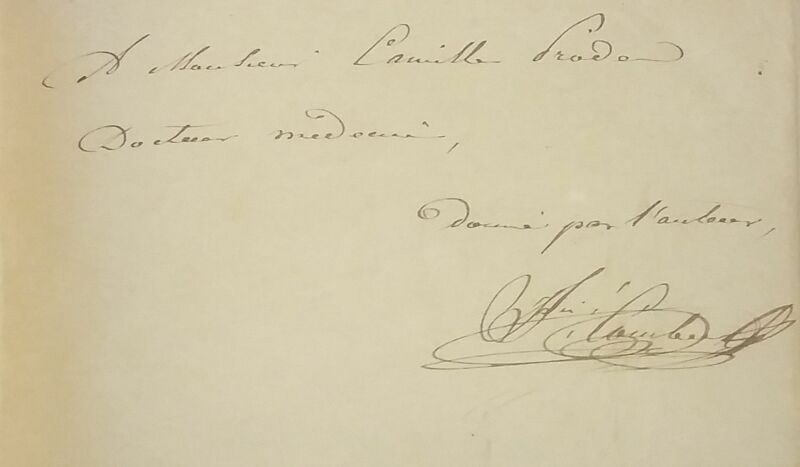 A Monsieur Camille Prodon
Docteur médecin,
Donné par l'auteur,